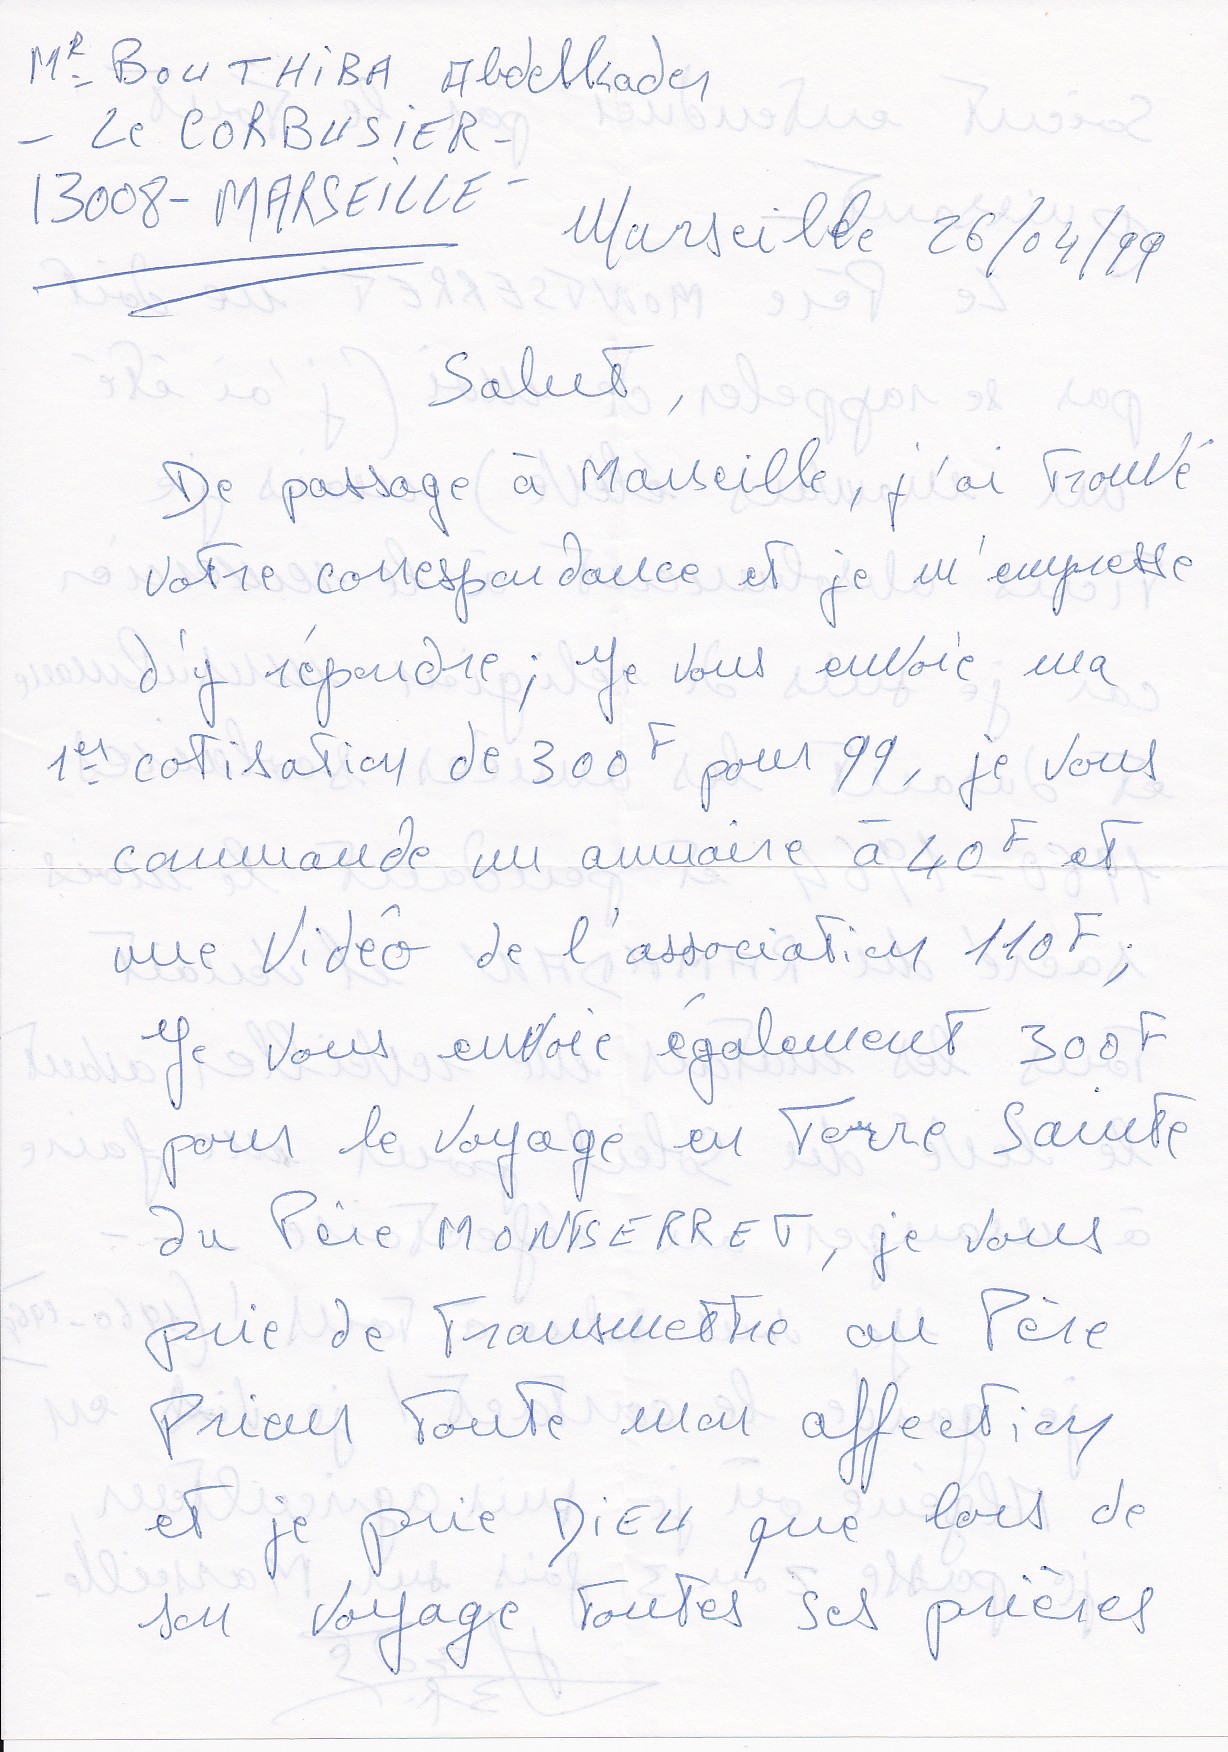 Mr BOUTHIBA Abdelkader
- Le CORBUSIER -
13008 - MARSEILLE -
Marseille 26/04/99
Salut,
De passage à Marseille, j'ai trouvé
votre correspondance et je m'empresse
d'y répondre; Je vous envoie ma
1er cotisation de 300F pour 99, je vous
commande un annuaire à 40F et
une Vidéo de l'association 110F;
Je vous envoie également 300F
pour le voyage en Terre Sainte
du Père MONTSERRET, je vous
prie de transmettre au Père
Prieur toute mon affection
et je prie DIEU que lors de
son voyage toutes ses prières